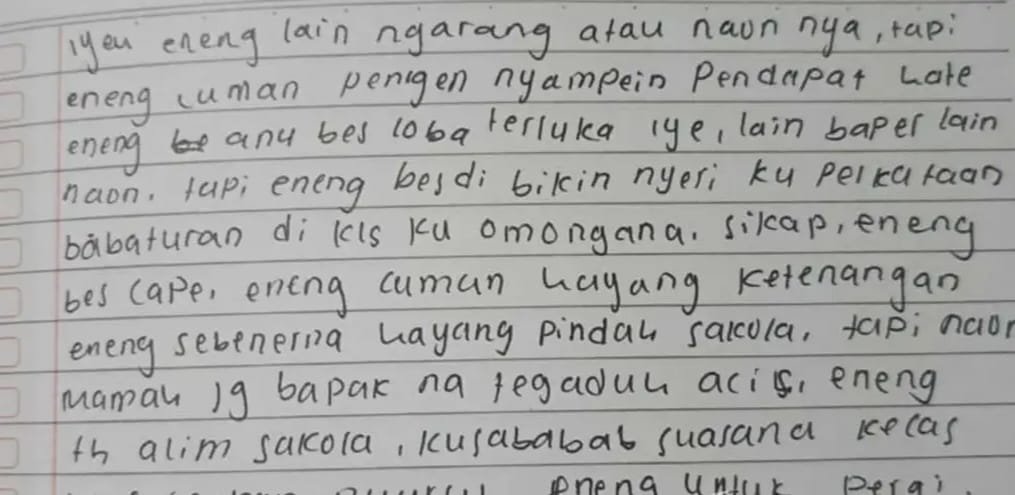 iyeu eneng lain ngarang atau naon nya, tapi
eneng cuman pengen nyampein Pendapat hate
eneng be anu bes loba terluka iye, lain baper lain
naon. tapi eneng bes di bikin nyeri ku perkataan
babaturan di kls ku omongana. sikap, eneng
bes cape, eneng cuman hayang ketenangan
eneng sebenerna hayang pindah sakola, tapi naon
mamah jg bapak na tegaduh acis, eneng
th alim sakola, kusababab suasana kelas
eneng untuk pergi